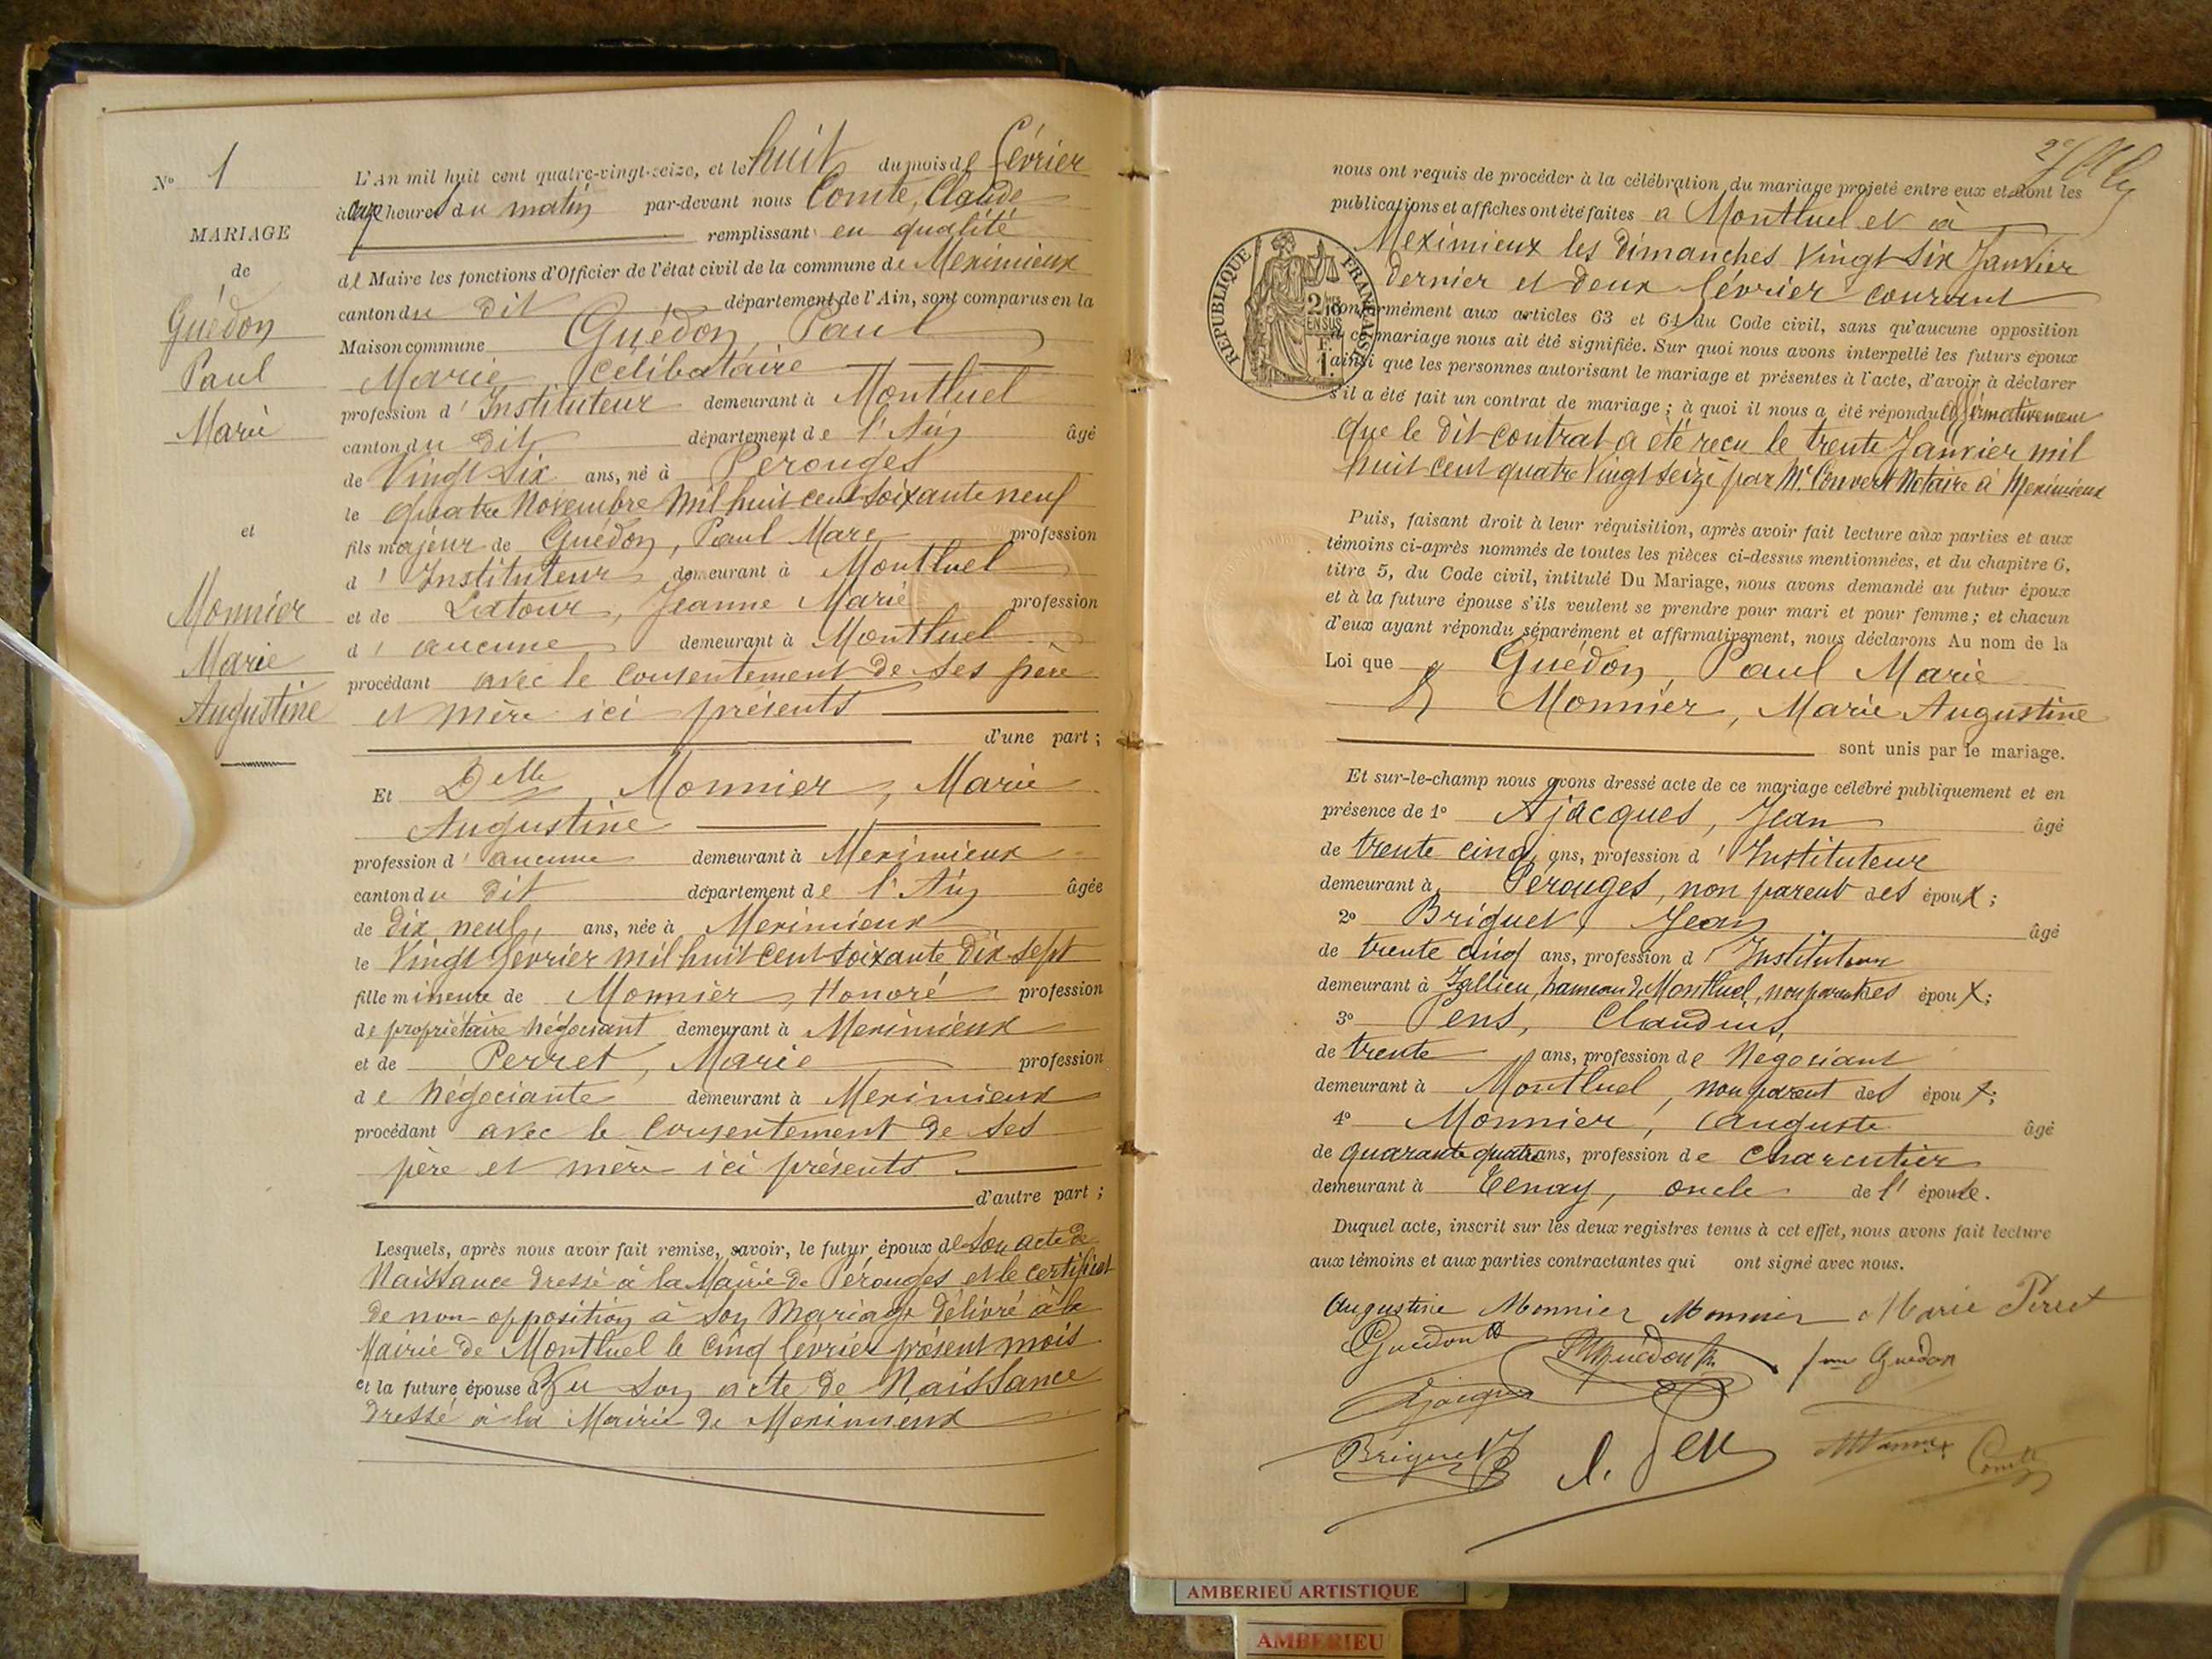 N° 1
MARIAGE
de
Guédon
Paul
Marie
et
Monnier
Marie
Augustine
L'An mil huit cent quatre-vingt-seize, et le huit du mois de février
à onze heures du matin par-devant nous Comte, Claude
remplissant en qualité
de Maire les fonctions d'Officier de l'état civil de la commune de Meximieux
canton du dit département de l'Ain, sont comparus en la
Maison commune Guédon, Paul
Marie, célibataire
profession d'Instituteur demeurant à Montluel
canton du dit département de l'Ain âgé
de Vingt Six ans, né à Pérouges
le quatre Novembre Mil huit cent soixante neuf
fils majeur de Guédon, Paul Marc profession
d'Instituteur demeurant à Montluel
et de Latour, Jeanne Marie profession
d'aucune demeurant à Montluel
procédant avec le consentement de ses père
et mère ici présents
d'une part ;
Et Delle Monnier, Marie
Augustine
profession d'aucune demeurant à Meximieux
canton du dit département de l'Ain âgée
de dix neuf ans, née à Meximieux
le Vingt février mil huit cent soixante dix sept
fille mineure de Monnier, Honoré profession
de propriétaire négociant demeurant à Meximieux
et de Perret, Marie profession
de négociante demeurant à Meximieux
procédant avec le consentement de ses
père et mère ici présents
d'autre part ;
Lesquels, après nous avoir fait remise, savoir, le futur époux de Son acte de
Naissance dressé à la Mairie de Pérouges et le certificat
de non-opposition à son Mariage délivré à la
Mairie de Montluel le cinq février présent mois
et la future épouse d Vu son acte de Naissance
dressé à la Mairie de Meximieux
nous ont requis de procéder à la célébration du mariage projeté entre eux et dont les
publications et affiches ont été faites à Montluel et à
Meximieux les dimanches Vingt Six Janvier
dernier et deux février courant
conformément aux articles 63 et 64 du Code civil, sans qu'aucune opposition
à ce mariage nous ait été signifiée. Sur quoi nous avons interpellé les futurs époux
ainsi que les personnes autorisant le mariage et présentes à l'acte, d'avoir à déclarer
s'il a été fait un contrat de mariage ; à quoi il nous a été répondu affirmativement
que le dit contrat a été reçu le trente Janvier mil
huit cent quatre Vingt seize par Me Convert Notaire à Meximieux
RÉPUBLIQUE FRANÇAISE
Puis, faisant droit à leur réquisition, après avoir fait lecture aux parties et aux
témoins ci-après nommés de toutes les pièces ci-dessus mentionnées, et du chapitre 6,
titre 5, du Code civil, intitulé Du Mariage, nous avons demandé au futur époux
et à la future épouse s'ils veulent se prendre pour mari et pour femme ; et chacun
d'eux ayant répondu séparément et affirmativement, nous déclarons Au nom de la
Loi que Guédon, Paul Marie
& Monnier, Marie Augustine
sont unis par le mariage.
Et sur-le-champ nous avons dressé acte de ce mariage célébré publiquement et en
présence de 1° Ajacques, Jean âgé
de trente cinq ans, profession d'Instituteur
demeurant à Pérouges, non parent des époux ;
2° Briquet, Jean âgé
de trente cinq ans, profession d'Instituteur
demeurant à Jallieu, hameau de Montluel, non parent des époux ;
3° Pens, Claudius,
de trente ans, profession de Négociant
demeurant à Montluel, non parent des époux ;
4° Monnier, Auguste âgé
de quarante quatre ans, profession de Charcutier
demeurant à Tenay, oncle de l'épouse.
Duquel acte, inscrit sur les deux registres tenus à cet effet, nous avons fait lecture
aux témoins et aux parties contractantes qui ont signé avec nous.
Augustine Monnier Monnier Marie Perret
Guédon Guédon fme Guédon
Ajacques
Briquet Comte
AMBERIEU ARTISTIQUE
AMBERIEU